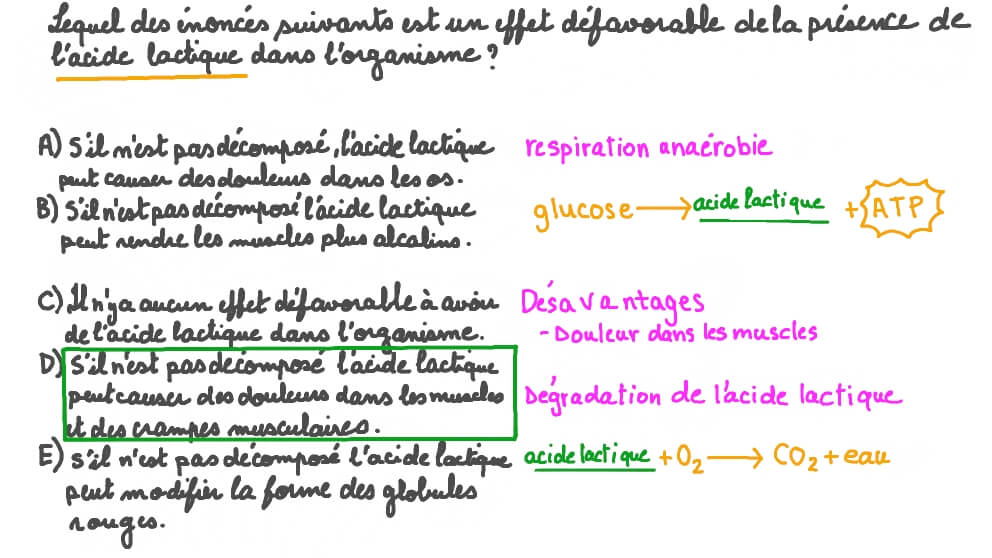 Lequel des énoncés suivants est un effet défavorable de la présence de
l'acide lactique dans l'organisme ?
A) S'il n'est pas décomposé, l'acide lactique
peut causer des douleurs dans les os.
B) S'il n'est pas décomposé l'acide lactique
peut rendre les muscles plus alcalins.
C) Il n'y a aucun effet défavorable à avoir
de l'acide lactique dans l'organisme.
D) S'il n'est pas décomposé l'acide lactique
peut causer des douleurs dans les muscles
et des crampes musculaires.
E) S'il n'est pas décomposé l'acide lactique
peut modifier la forme des globules
rouges.
respiration anaérobie
glucose → acide lactique + ATP
Désavantages
- Douleur dans les muscles
Dégradation de l'acide lactique
acide lactique + O₂ → CO₂ + eau